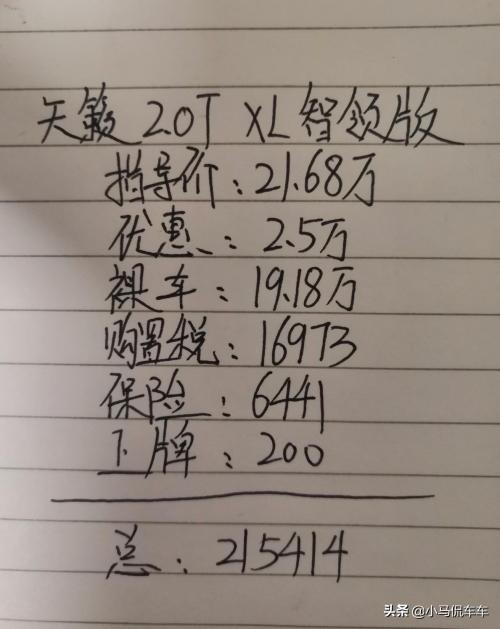 天籁 2.0T XL智领版
指导价：21.68万
优惠：2.5万
裸车：19.18万
购置税：16973
保险：6441
上牌：200
总：215414
头条 @小马侃车车